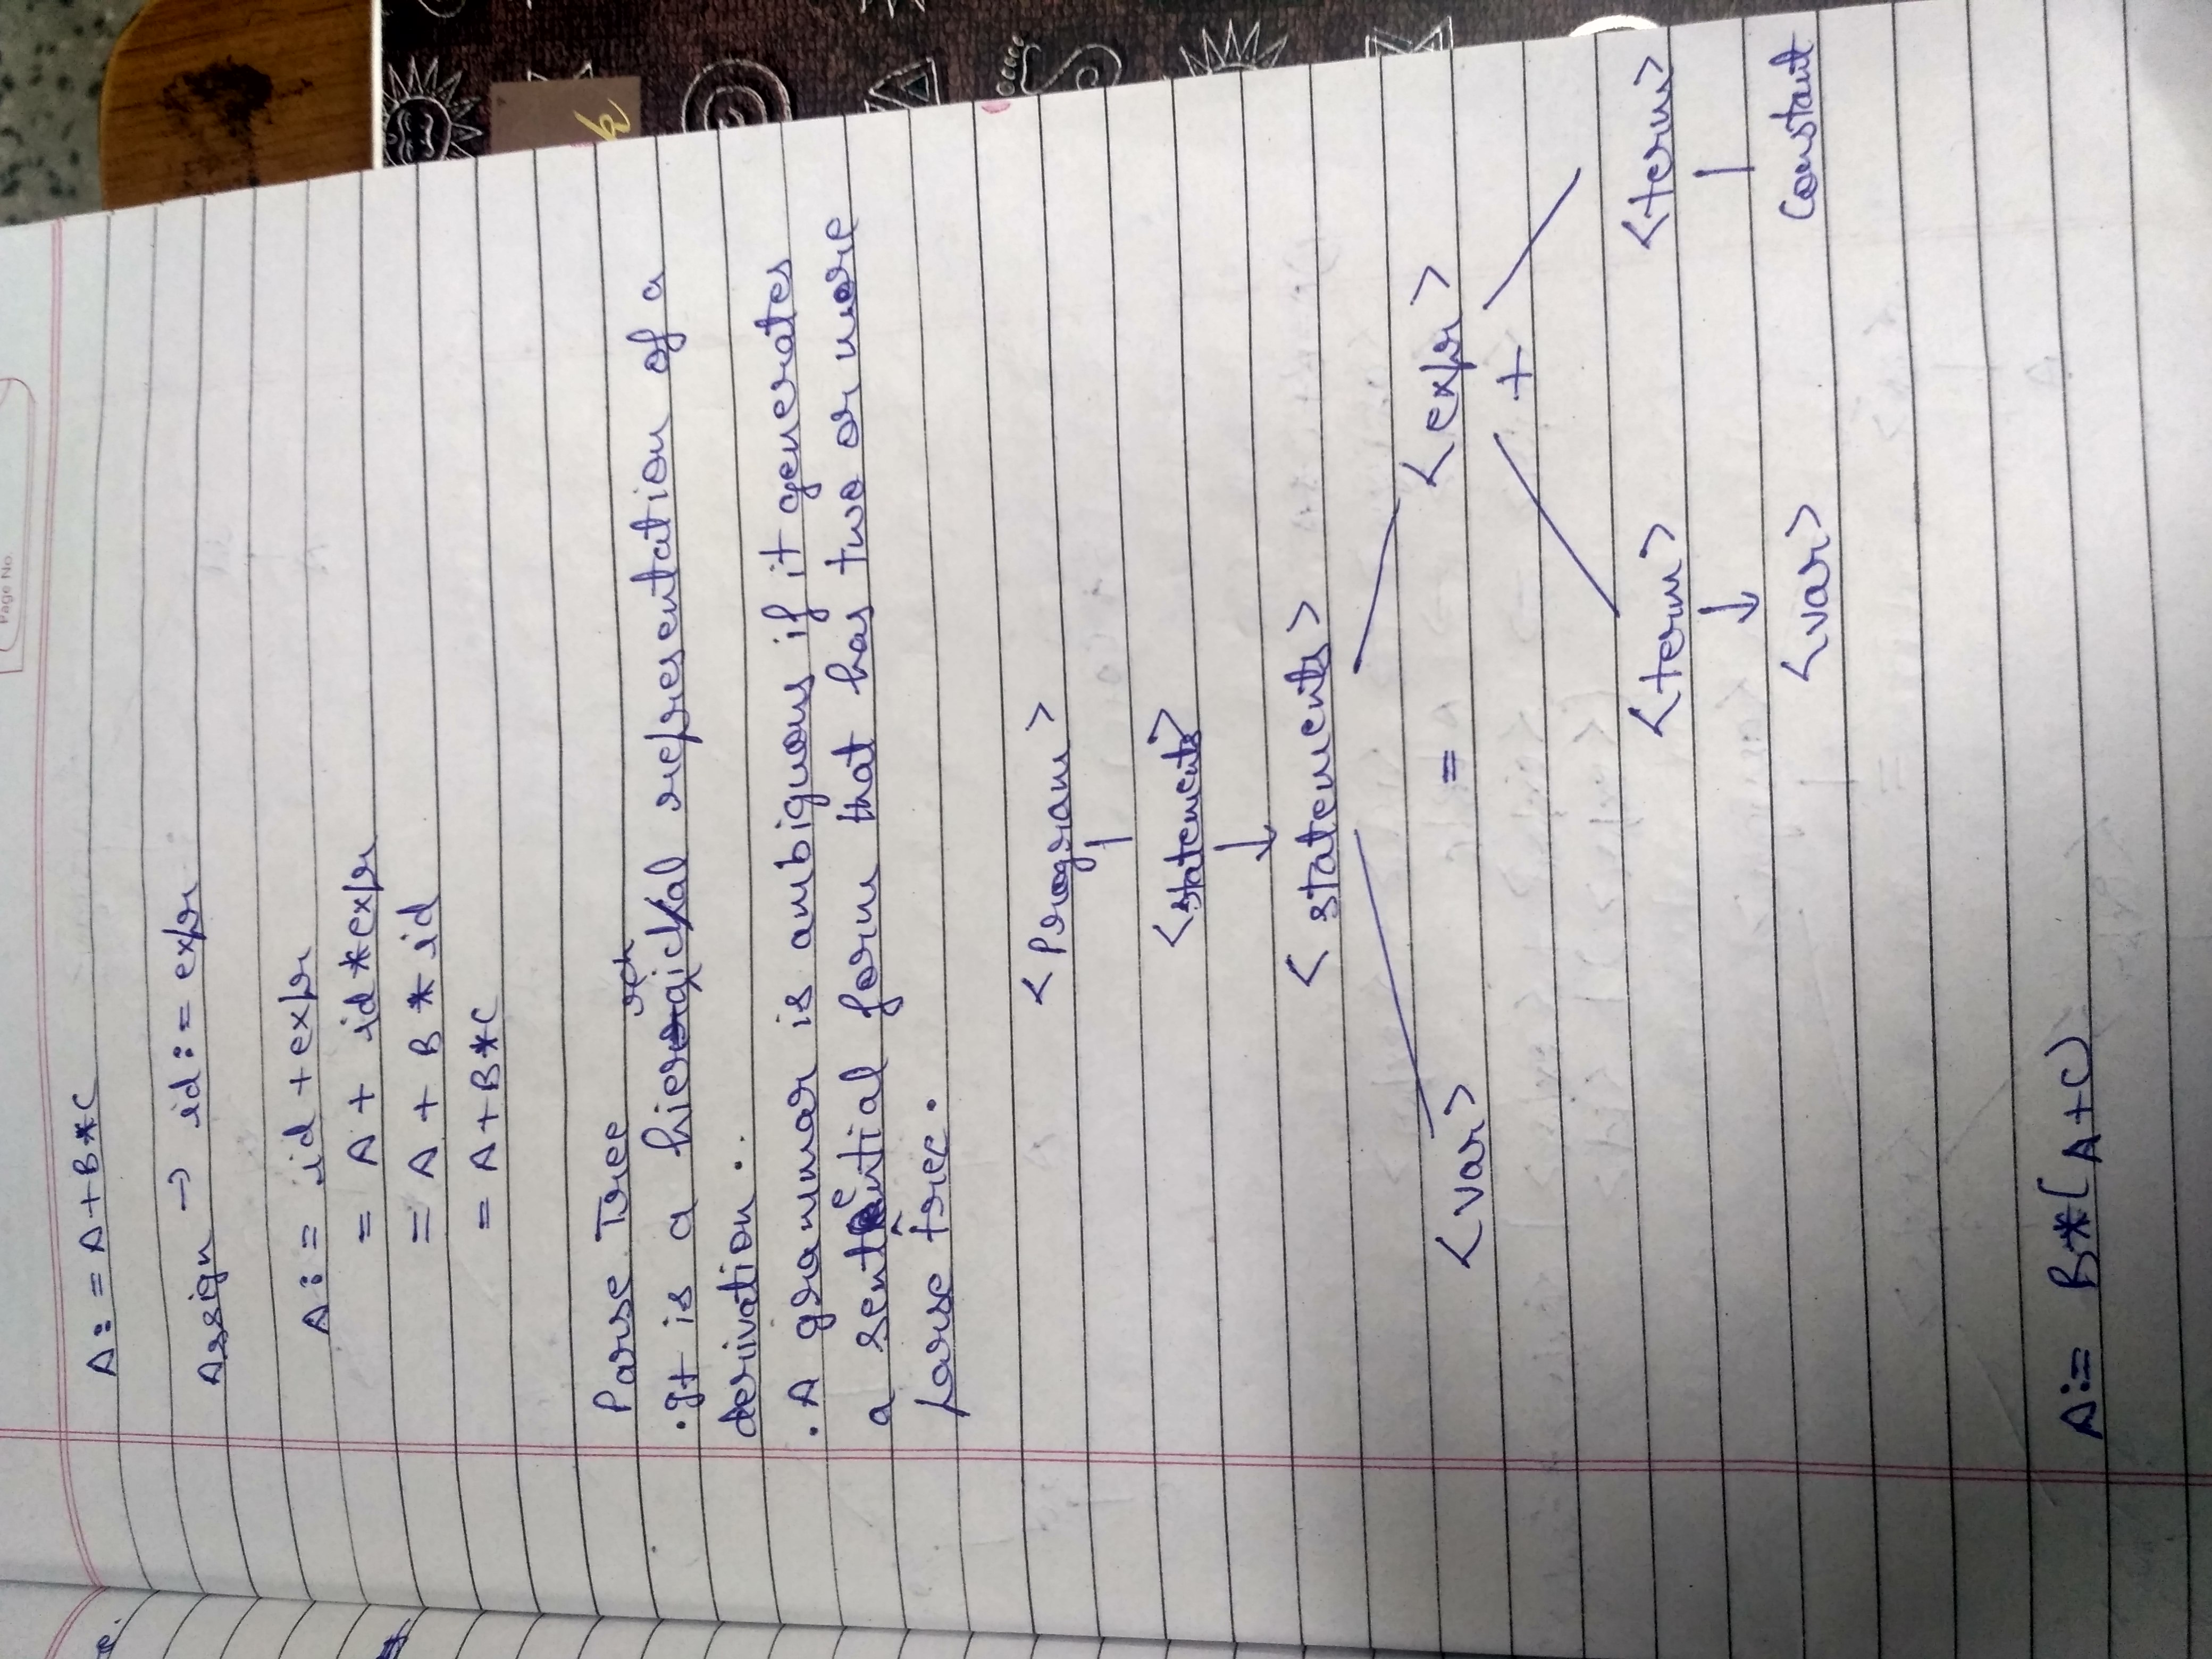 Page No.
A := A+B*C
Assign → id := expr
A := id + expr
= A + id * expr
= A + B * id
= A + B * C
Parse Tree
. It is a hierarchical representation of a
derivation.
. A grammar is ambiguous if it generates
a sentential form that has two or more
parse trees.
<Program>
<statements>
↓
<statements>
<var> = <expr>
+
<term> <term>
↓
<var> Constant
A := B*(A+C)